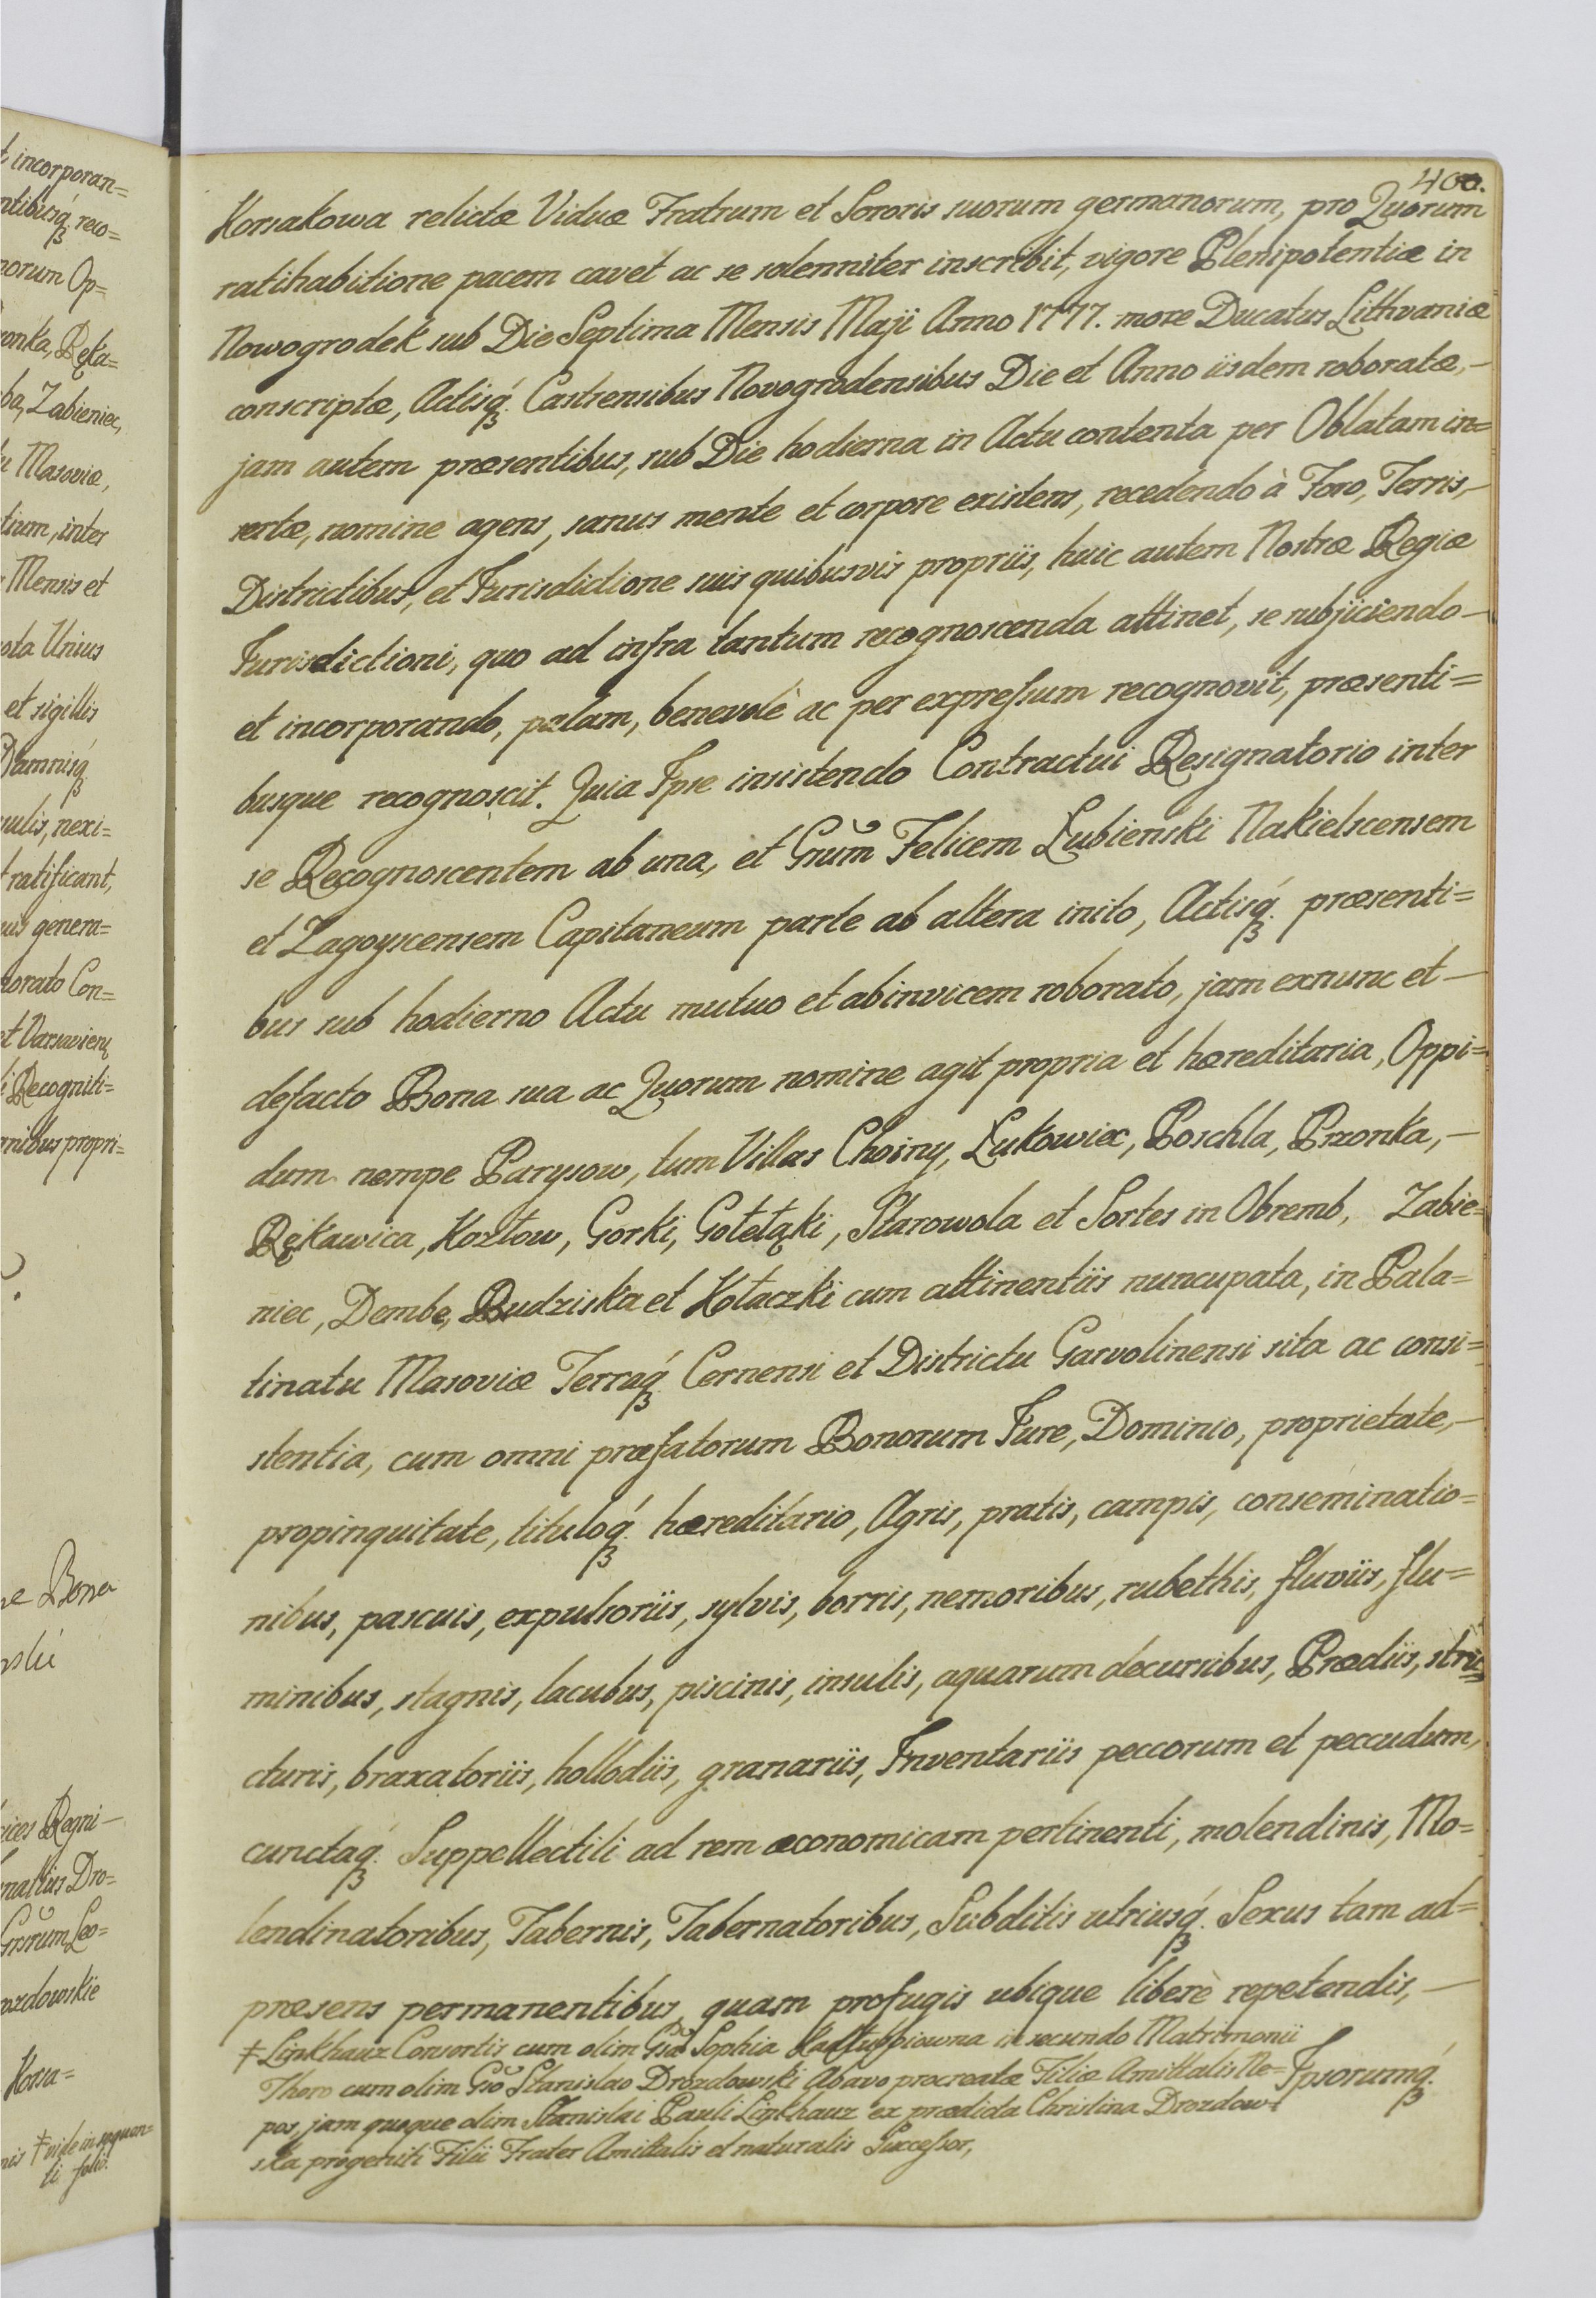 t incorporan=
ntibusq́ʒ reco=
norum Op=
zonka, Ręka=
ba, Zabieniec,
u Masoviæ,
tium, inter
Mensis et
ota Unius
et sigillis
Damnisq́ʒ
ulis, nexi=
ratificant,
uis genera=
morato Con=
et Varsavien
Recogniti=
nibus propri=
Bona
ices Regni
natius Dro=
Grrum Leo=
rozdowskie
Korsa=
nis ‡ vide in sequen=
ti folio.
400.
Korsakowa relictæ Viduæ Fratrum et Sororis suorum germanorum, pro Quorum
ratihabitione pacem cavet ac se solenniter inscribit, vigore Plenipotentiæ in
Nowogrodek sub Die Septima Mensis Maji Anno 1777. more Ducatus Lithvaniæ
conscriptæ, Actisq́ʒ Castrensibus Novogrodensibus Die et Anno iisdem roboratæ,—
jam autem præsentibus, sub Die hodierna in Actu contenta per Oblatam in=
sertæ, nomine agens, sanus mente et corpore existens, recedendo à Foro, Terris,—
Districtibus, et Jurisdictione suis quibusvis propriis, huic autem Nostræ Regiæ
Jurisdictioni, quo ad infra tantum recognoscenda attinet, se subjiciendo—
et incorporando, palam, benevolè ac per expressum recognovit, præsenti=
busque recognoscit. Quia Ipse insistendo Contractui Resignatorio inter
se Recognoscentem ab una, et Gnum Felicem Łubienski Nakielscensem
et Zagoyscensem Capitaneum parte ab altera inito, Actisq́ʒ præsenti=
bus sub hodierno Actu mutuo et abinvicem roborato, jam exnunc et—
defacto Bona sua ac Quorum nomine agit propria et hæreditaria, Oppi=
dum nempe Parysow, tum Villas Choiny, Łukowiec, Poschla, Przonka,—
Rękawica, Kozłow, Gorki, Gołełąki, Starowola et Sortes in Obremb, Zabie=
niec, Dembe, Budziska et Kołaczki cum attinentiis nuncupata, in Pala=
tinatu Masoviæ Terraq́ʒ Cernensi et Districtu Garvolinensi sita ac consi=
stentia, cum omni præfatorum Bonorum Jure, Dominio, proprietate,—
propinquitate, tituloq́ʒ hæreditario, Agris, pratis, campis, conseminatio=
nibus, pascuis, expulsoriis, sylvis, borris, nemoribus, rubethis, fluviis, flu=
minibus, stagnis, lacubus, piscinis, insulis, aquarum decursibus, Prædiis, stru=
cturis, braxatoriis, hollodiis, granariis, Inventariis peccorum et peccudum,
cunctaq́ʒ Suppellectili ad rem œconomicam pertinenti, molendinis, Mo=
lendinatoribus, Tabernis, Tabernatoribus, Subditis utriusq́ʒ Sexus tam ad=
præsens permanentibus, quam profugis ubique liberè repetendis,—
‡ Linkhauz Consortis cum olim Gna Sophia in secundo Matrimonii
Thoro cum olim Gño Stanislao Drozdowski Abavo procreatæ Filiæ Amittalis Ne=
Ipsorumq́ʒ
pos, jam quoque olim Stanislai Pauli Linkhauz ex prædicta Christina Drozdow=
ska progeniti Filii Frater Amittalis et naturalis Successor,